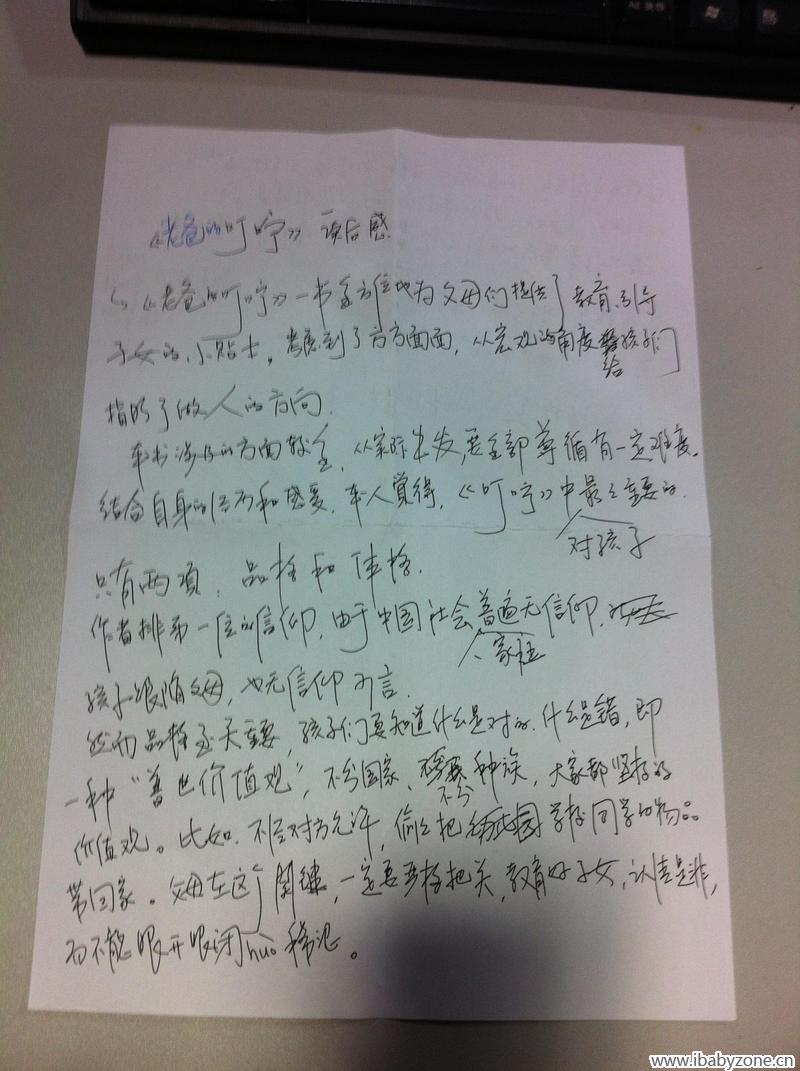 《老爸的叮咛》读后感
《老爸的叮咛》一书全方位地为父母们提供了教育、引导
子女的小贴士，考虑到了方方面面，从宏观的角度给孩子们
指明了做人的方向。
本书涉及的方面较全，从实际出发，要全部尊循有一定难度。
结合自身的经历和感受，本人觉得，《叮咛》中对孩子最重要的
只有两项，品格和体格。
作者排第一位的信仰，由于中国社会、家庭普遍无信仰，
孩子跟随父母，也无信仰可言。
然而品格至关重要，孩子们要知道什么是对的，什么是错，即
一种“普世价值观”，不分国家、不分种族，大家都坚持的
价值观。比如，不经对方允许，偷偷把学校同学的物品
带回家。父母在这个关键，一定要严格把关，教育好子女，认清是非，
而不能眼开眼闭huo稀泥。
www.ibabyzone.cn